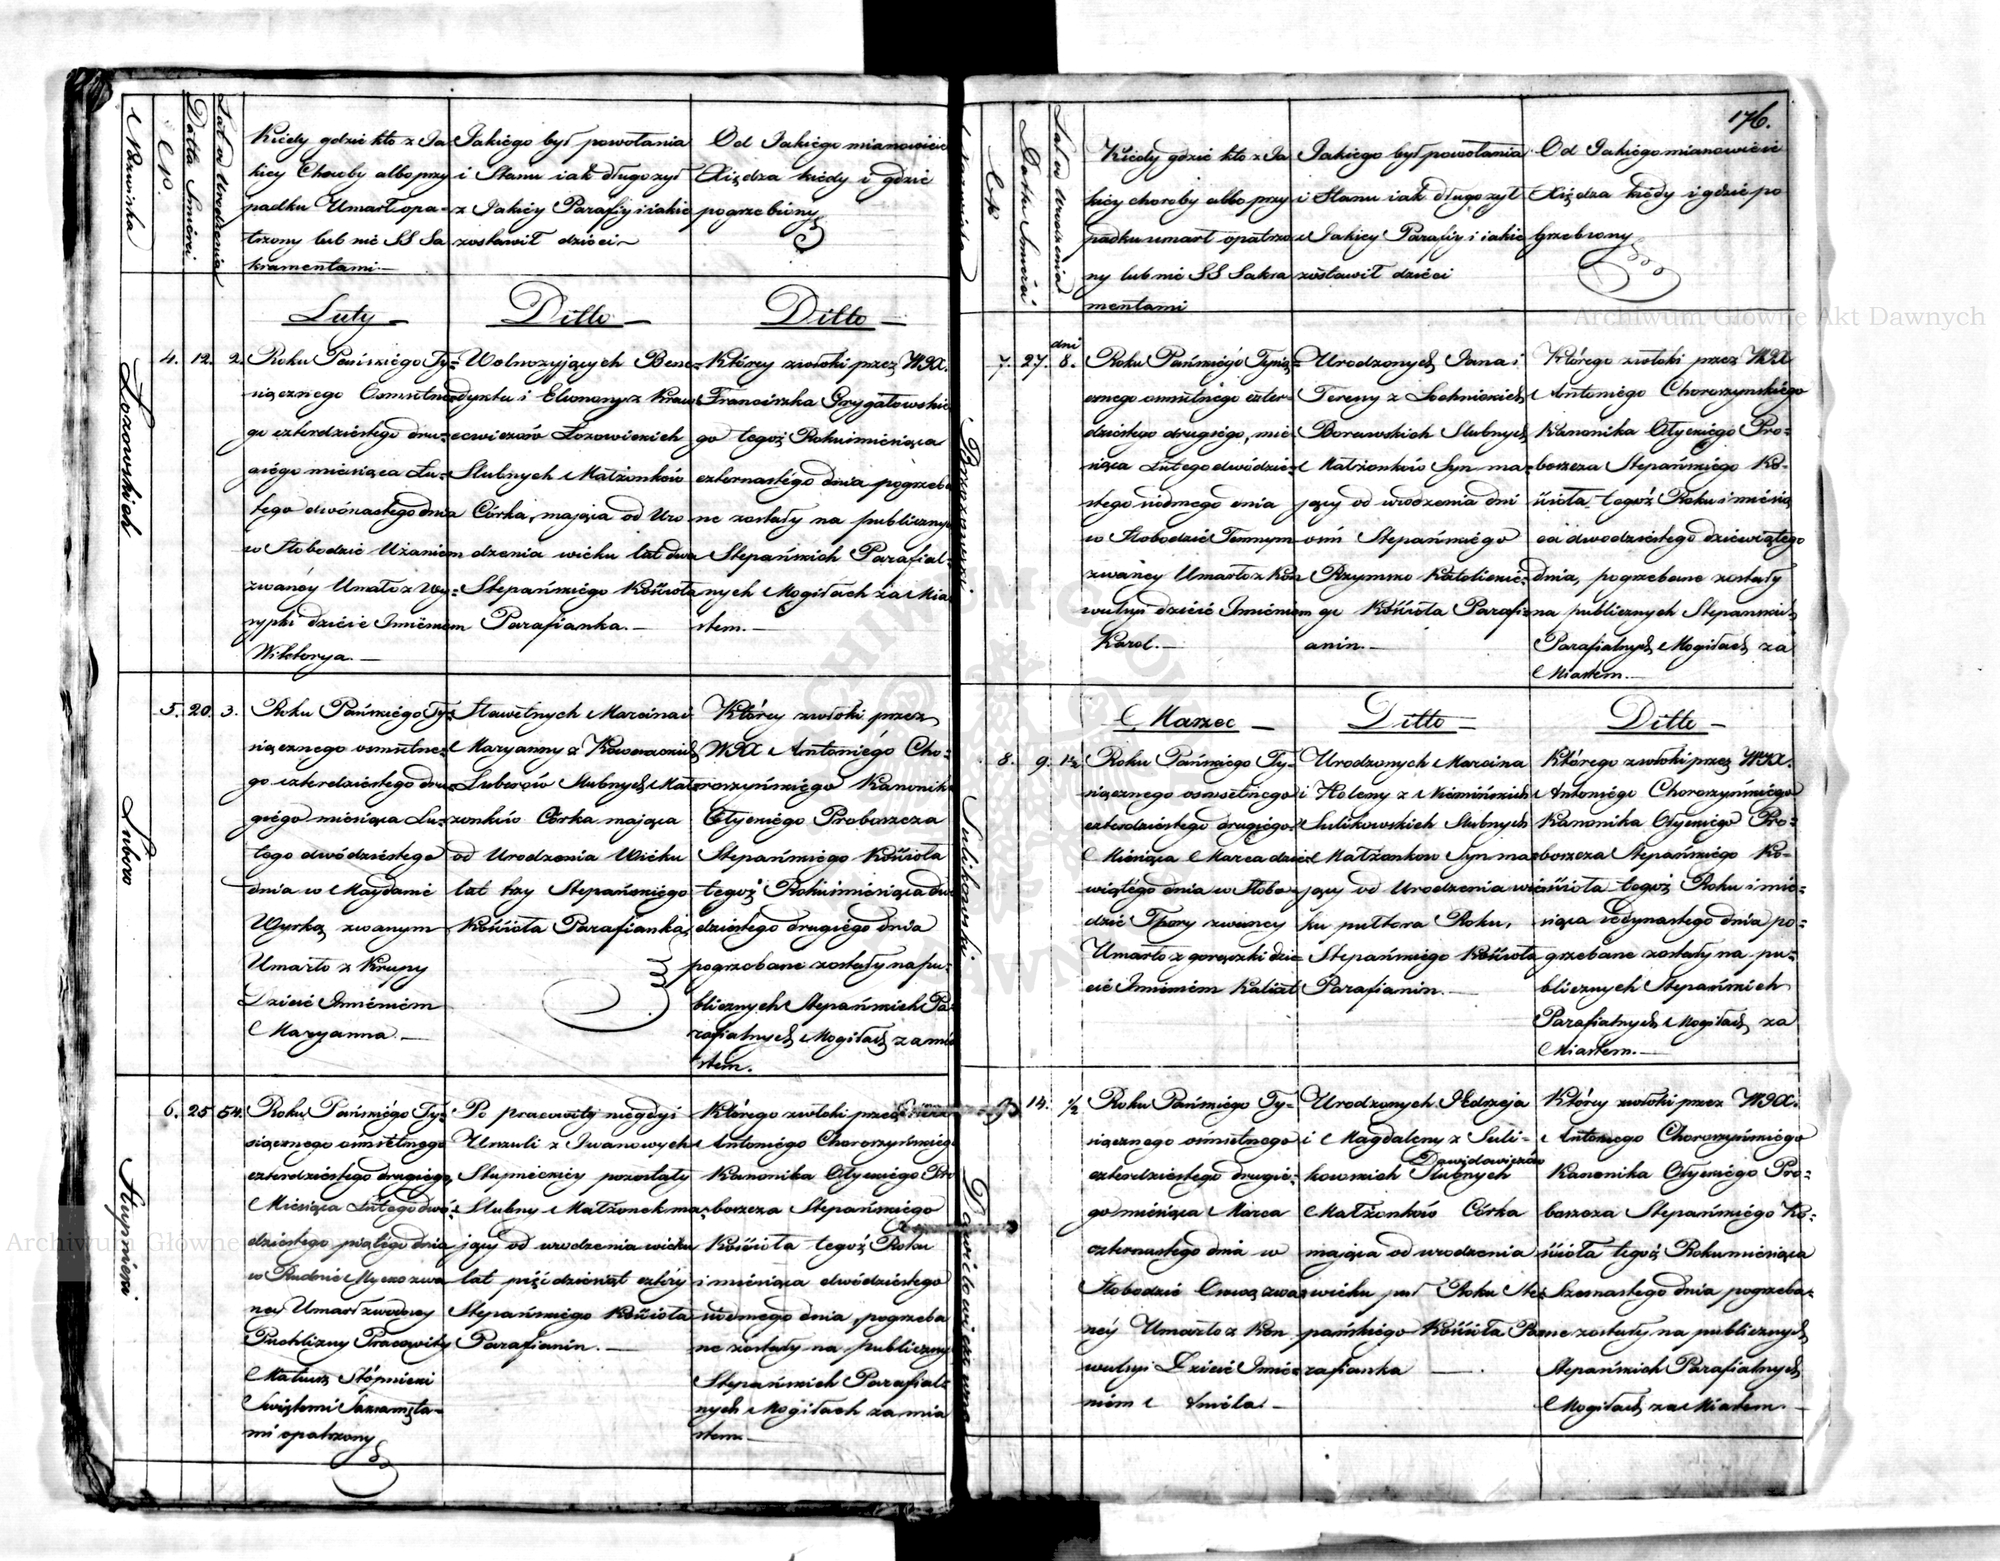 176.
Nazwiska
N.
Datta Smierci
Lat od Urodzenia
Kiedy gdzie kto z Ja-
kiey Choroby albo przy
padku Umarł opa-
trzony lub nie SS Sa
kramentami
Jakiego był powołania
i Stanu iak długo żył
z Jakiey Parafiy i iakie
zostawił dzieci
Od Jakiego mianowicie
Xiędza kiedy i gdzie
pogrzebiony
Luty
Ditto
Ditto
Łozowickich
4. 12. 2.
Roku Pańskiego Ty-
siącznego Osmsetne
go czterdziestego dru-
giego miesiąca Lu-
tego dwónastego dnia
w Słobodzie
zwanéy Umarło z Wy-
sypki dziecie Imieniem
Wiktorya.
Wolnożyjących Bene-
dykta i Eleonory z Kraw-
cewiczów Łozowickich
Slubnych Małżonków
Córka, mająca od Uro
dzenia wieku lat dwa
Stepańskiego Kościoła
Parafianka.
Którey zwłoki przez WJX.
Franciszka Grygatowskie
go tegoż Roku i miesiąca
czternastego dnia pogrzeba
ne zostały na publiczny
Stepańskich Parafial-
nych Mogiłach za Mia
stem.
Lubero
5. 20. 3.
Roku Pańskiego Ty-
siącznego osmsetne-
go czterdziestego dru-
giego miesiąca Lu-
tego dwódziestego
dnia w Maydanie
Wyrką zwanym
Umarło z Krupy
Dziecie Imieniem
Maryanna.
Sławetnych Marcina i
Maryanny z
Luberów Slubnych Mał-
żonków Córka mająca
od Urodzenia Wieku
lat trzy Stepańskiego
Kościoła Parafianka,
Którey zwłoki przez
WJX Antoniego Cho-
roszyńskiego Kanonik
Ołyckiego Proboszcza
Stepańskiego Kościoła
tegoż Roku i miesiąca dwó
dziestego drugiego dnia
pogrzebane zostały na pu-
blicznych Stepańskich Pa-
rafialnych Mogiłach za mia
stem.
6. 25 54.
Roku Pańskiego Ty-
siącznego osmsetnego
czterdziestego drugiego
Miesiąca Lutego dwó-
dziestego piątego dnia
w Rudnie zwa
ney Umarł z wodney
Puchliny Pracowity
Mateusz Stópnicki
Swiętemi Sakramęta-
mi opatrzony
Po pracowitey niegdyś
Urszuli z Iwanowych
Stupnickiey pozostały
Slubny Małżonek ma-
jący od urodzenia wieku
lat pięćdziesiąt cztéry
Stepańskiego Kościoła
Parafianin.
Którego zwłoki przez
Antoniego Choroszyńskieg
Kanonika Ołyckiego Pro
boszcza Stepańskiego
Kościoła tegoż Roku
i miesiąca dwódziestego
siódmego dnia, pogrzeba
ne zostały na publiczny
Stepańskich Parafial-
nych Mogiłach za mia
stem.
Datta Smierci
Lat od Urodzenia
Kiedy gdzie kto z Ja
kiey choroby albo przy
padku umarł opatrzo
ny lub nie SS Sakra
mentami
Jakiego był powołania
i Stanu iak długo żył
z Jakiey Parafiy i iakie
zostawił dzieci
Od Jakiego mianowicie
Xiędza kiedy i gdzie po
grzebiony
7. 27. dni 8.
Roku Pańskiego Tysią-
cznego osmsetnego czter-
dziestego drugiego, mie-
siąca Lutego dwódzie-
stego siódmego dnia
w Słobodzie Temnym
zwaney Umarło z Kon
wulsyi dziecie Imieniem
Karol.
Urodzonych Jana i
Teresy z
Borawskich Slubnych
Małżonków Syn ma-
jący od urodzenia dni
ośm Stepańskiego
Rzymsko Katolickie-
go Kościoła Parafi-
anin.
Którego zwłoki przez WJX
Antoniego Choroszynskiego
Kanonika Ołyckiego Pro-
boszcza Stepańskiego Ko-
ścioła tegoż Roku i miesią
ca dwodziestego dziewiątego
dnia, pogrzebane zostały
na publicznych Stepanskich
Parafialnych Mogiłach za
Miastem.
Marzec
Ditto
Ditto
Sulikowski
8. 9. 1½
Roku Pańskiego Ty-
siącznego osmsetnego
czterdziestego drugiego
Miesiąca Marca dzie-
wiątego dnia w Słobo-
dzie zwaney
Umarło z gorączki dzie-
cie Imieniem Kalixt
Urodzonych Marcina
i Heleny z
Sulikowskich Slubnych
Małżonkow Syn ma-
jący od Urodzenia wie
ku pułtora Roku,
Stepańskiego Kościoła
Parafianin.
Którego zwłoki przez WJX.
Antoniego Choroszyńskiego
Kanonika Ołyckiego Pro-
boszcza Stepańskiego Ko-
ścioła tegoż Roku i mie-
siąca iedynastego dnia po-
grzebane zostały na pu-
blicznych Stepańskich
Parafialnych Mogiłach za
Miastem.
Dawidowiczówna
9 14. ½
Roku Pańskiego Ty-
siącznego osmsetnego
czterdziestego drugie-
go miesiąca Marca
czternastego dnia w
Słobodzie zwa-
néy Umarło z Kon
wulsyi Dziecie Imie-
niem Aniela.
Urodzonych Jędrzeja
i Magdaleny z Suli-
kowskich Dawidowiczów Slubnych
Małżonków Córka
mająca od urodzenia
wieku puł Roku Ste-
pańskiego Kościoła Pa-
rafianka
Którey zwłoki przez WJX.
Antoniego Choroszyńskiego
Kanonika Ołyckiego Pro-
boszcza Stepańskiego Ko-
ścioła tegoż Roku miesiąca
Szesnastego dnia pogrzeba-
ne zostały na publicznych
Stepańskich Parafialnych
Mogiłach za Miastem.
Archiwum Główne Akt Dawnych
Archiwum Główne